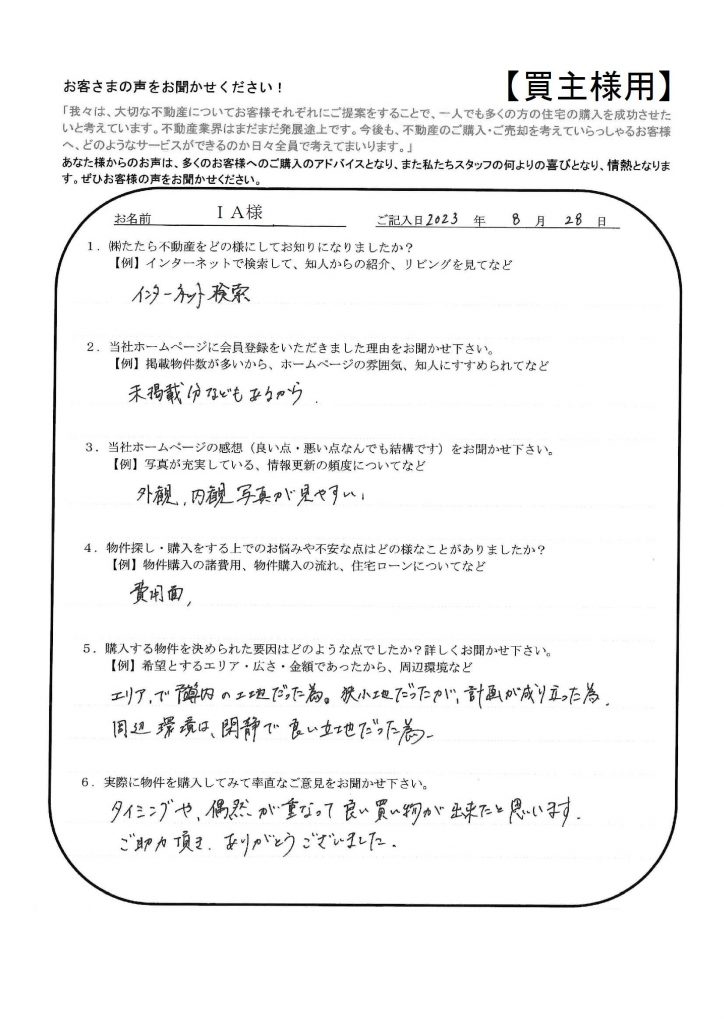 お客さまの声をお聞かせください！
【買主様用】
「我々は、大切な不動産についてお客様それぞれにご提案をすることで、一人でも多くの方の住宅の購入を成功させた
いと考えています。不動産業界はまだまだ発展途上です。今後も、不動産のご購入・ご売却を考えていらっしゃるお客様
へ、どのようなサービスができるのか日々全員で考えてまいります。」
あなた様からのお声は、多くのお客様へのご購入のアドバイスとなり、また私たちスタッフの何よりの喜びとなり、情熱となりま
す。ぜひお客様の声をお聞かせください。
お名前 ＩＡ様 ご記入日2023 年 8 月 28 日
１．㈱たたら不動産をどの様にしてお知りになりましたか？
【例】インターネットで検索して、知人からの紹介、リビングを見てなど
インターネット検索
２．当社ホームページに会員登録をいただきました理由をお聞かせ下さい。
【例】掲載物件数が多いから、ホームページの雰囲気、知人にすすめられてなど
未掲載分などもあるから．
３．当社ホームページの感想（良い点・悪い点なんでも結構です）をお聞かせ下さい。
【例】写真が充実している、情報更新の頻度についてなど
外観，内観写真が見やすい，
４．物件探し・購入をする上でのお悩みや不安な点はどの様なことがありましたか？
【例】物件購入の諸費用、物件購入の流れ、住宅ローンについてなど
費用面，
５．購入する物件を決められた要因はどのような点でしたか？詳しくお聞かせ下さい。
【例】希望とするエリア・広さ・金額であったから、周辺環境など
エリア，で 内の土地だった為。狭小地だったが，計画が成り立った為．
周辺環境は、閑静で良い立地だった為．
６．実際に物件を購入してみて率直なご意見をお聞かせ下さい。
タイミングや，偶然が重なって良い買い物が出来たと思います．
ご助力頂き．ありがとうございました．